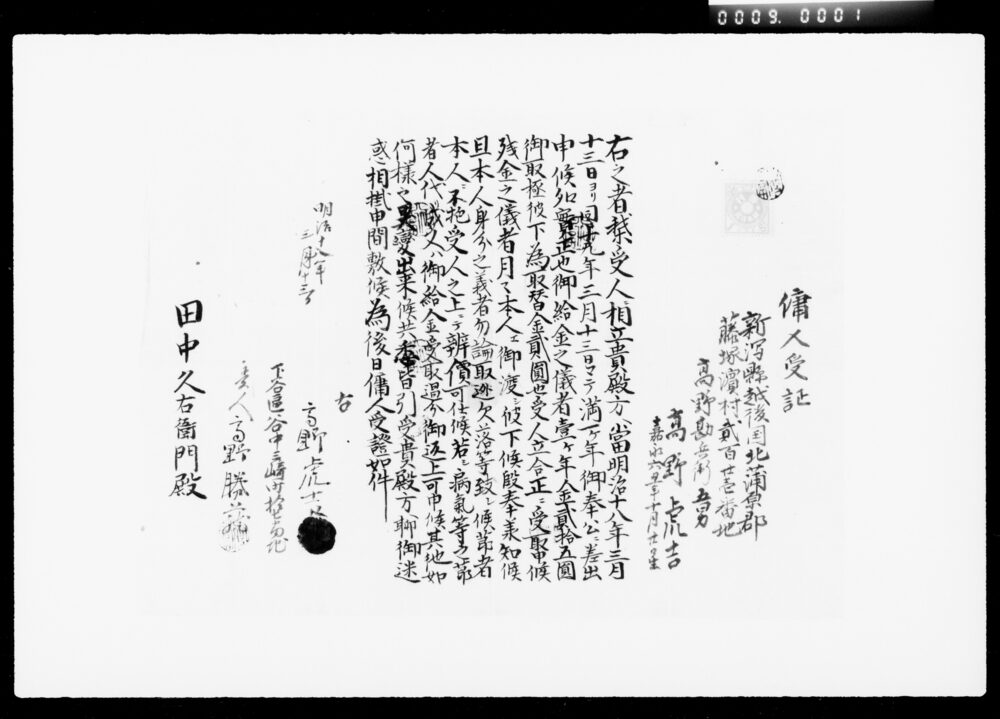 0009. 0001
傭人受証
新潟縣越後国北蒲原郡
藤塚濱村貳百廿壱番地
高野勘兵衛五男
高野虎吉
嘉永六丑年十月廿
右之者拙者受人相立貴殿方江當明治十八年三月
十三日ヨリ同十九年三月十三日マテ満一ヶ年御奉公ニ差出
申候処実正也御給金之儀者壹ヶ年金貳拾五圓
御取極彼下為取替金貳圓也受人立合正ニ受取申候
残金之儀者月々本人江御渡シ被下候段奉承知候
且本人身分之義者勿論取逃欠落等致シ候節者
本人ニ不抱受人之上ニテ辨償可仕候若シ病氣等之節
者人代リ又ハ御給金受取過分御返上可申候其他如
何様之異変出来候共皆引受貴殿方聊御迷
惑相掛申間敷候為後日傭人受證如件
明治十八年
三月十三日
右
高野虎吉
下谷區谷中三崎町
受人高野勝蔵
田中久右衛門殿